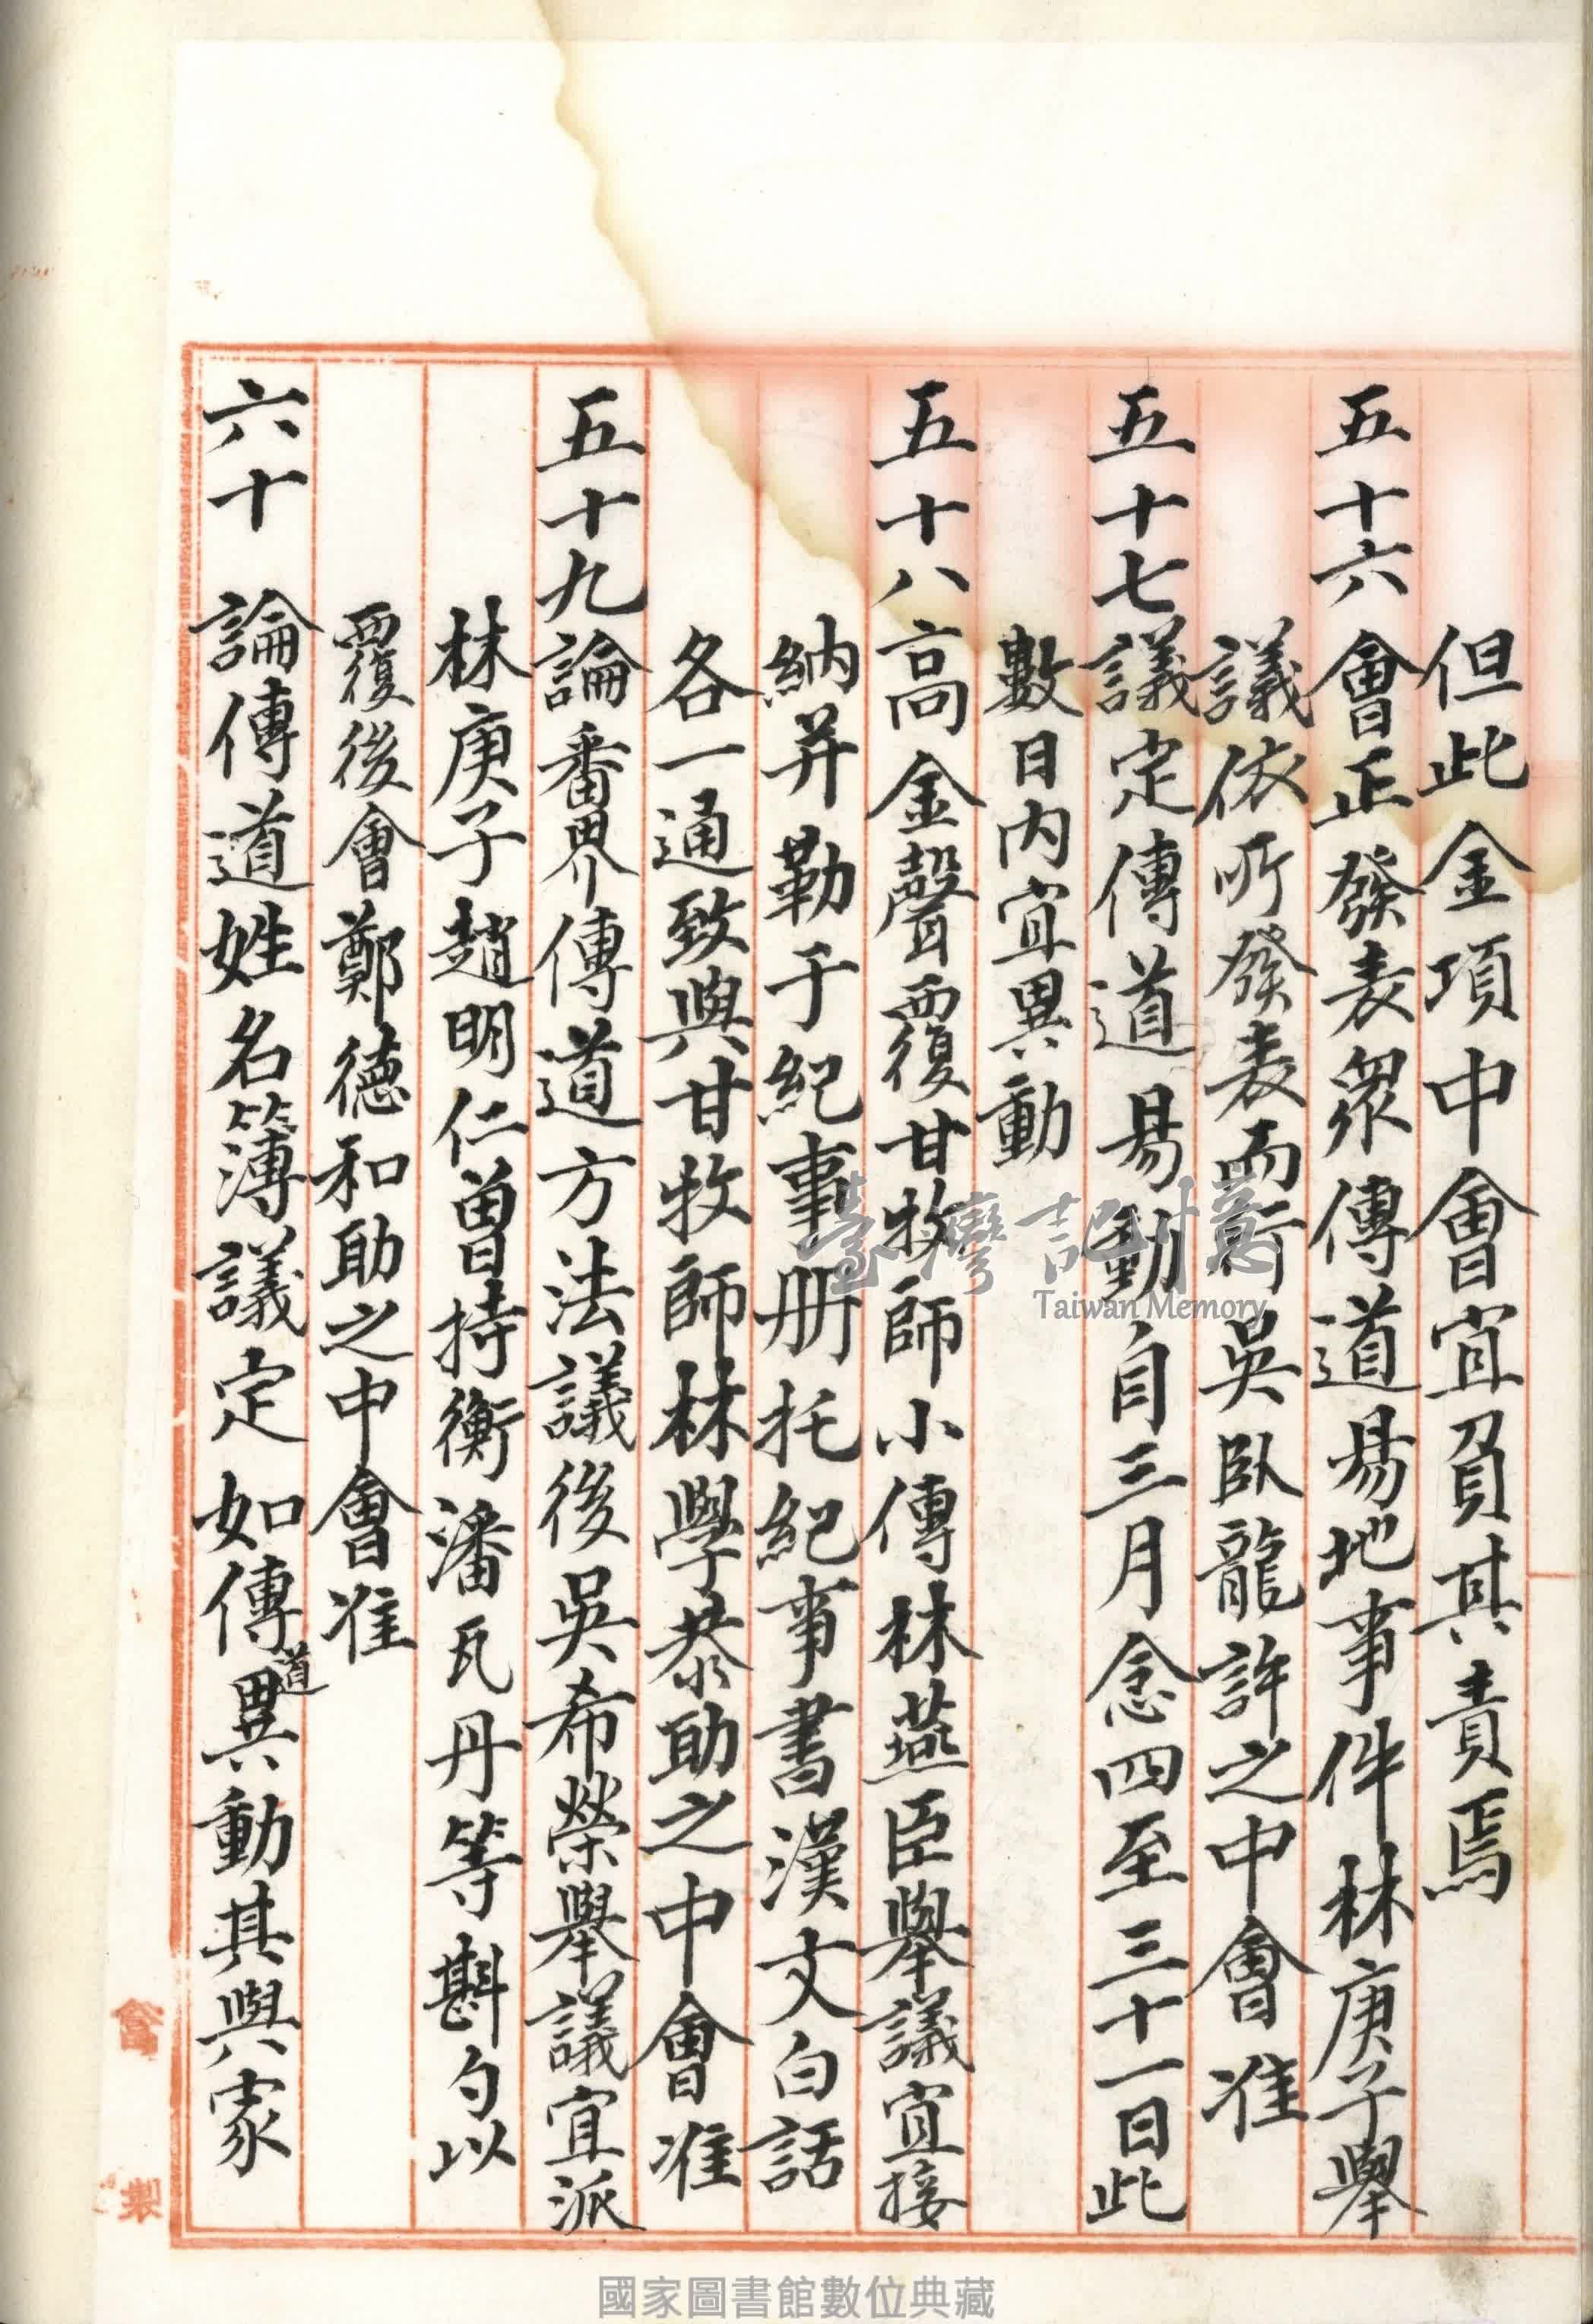 但此金項中會宜負其責焉
五十六會正發表眾傳道易地事件林庚子舉
議依所發表而行吳臥龍許之中會准
五十七議定傳道易動自三月念四至三十一日此
數日內宜異動
五十八高金聲覆甘牧師小傳林燕臣舉議宜接
納并勒于紀事册托紀事書漢文白話
各一通致與甘牧師林學恭助之中會准
五十九論番界傳道方法議後吳希榮舉議宜派
林庚子趙明仁曾持衡潘瓦丹等斟勺以
覆後會鄭德和助之中會准
六十 論傳道姓名簿議定如傳道異動其與家
臺灣記憶
Taiwan Memory
會
製
國家圖書館數位典藏